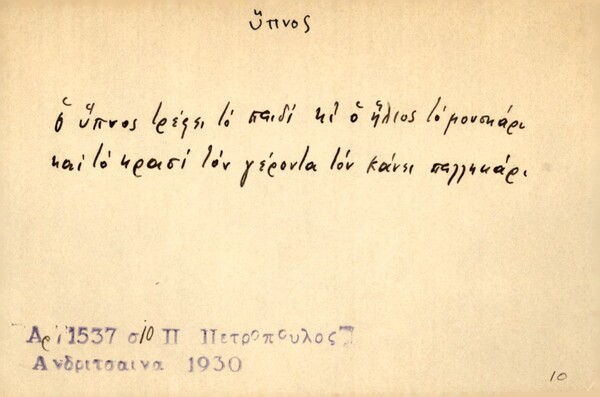 ὕπνος
ὁ ὕπνος τρέφει τό παιδί κι ὁ ἥλιος τό μουσκάρι
καί τό κρασί τόν γέροντα τόν κάνει παλληκάρι
Αρ 1537 σ 10 Π Πετροπουλος
Ανδριτσαινα 1930
10